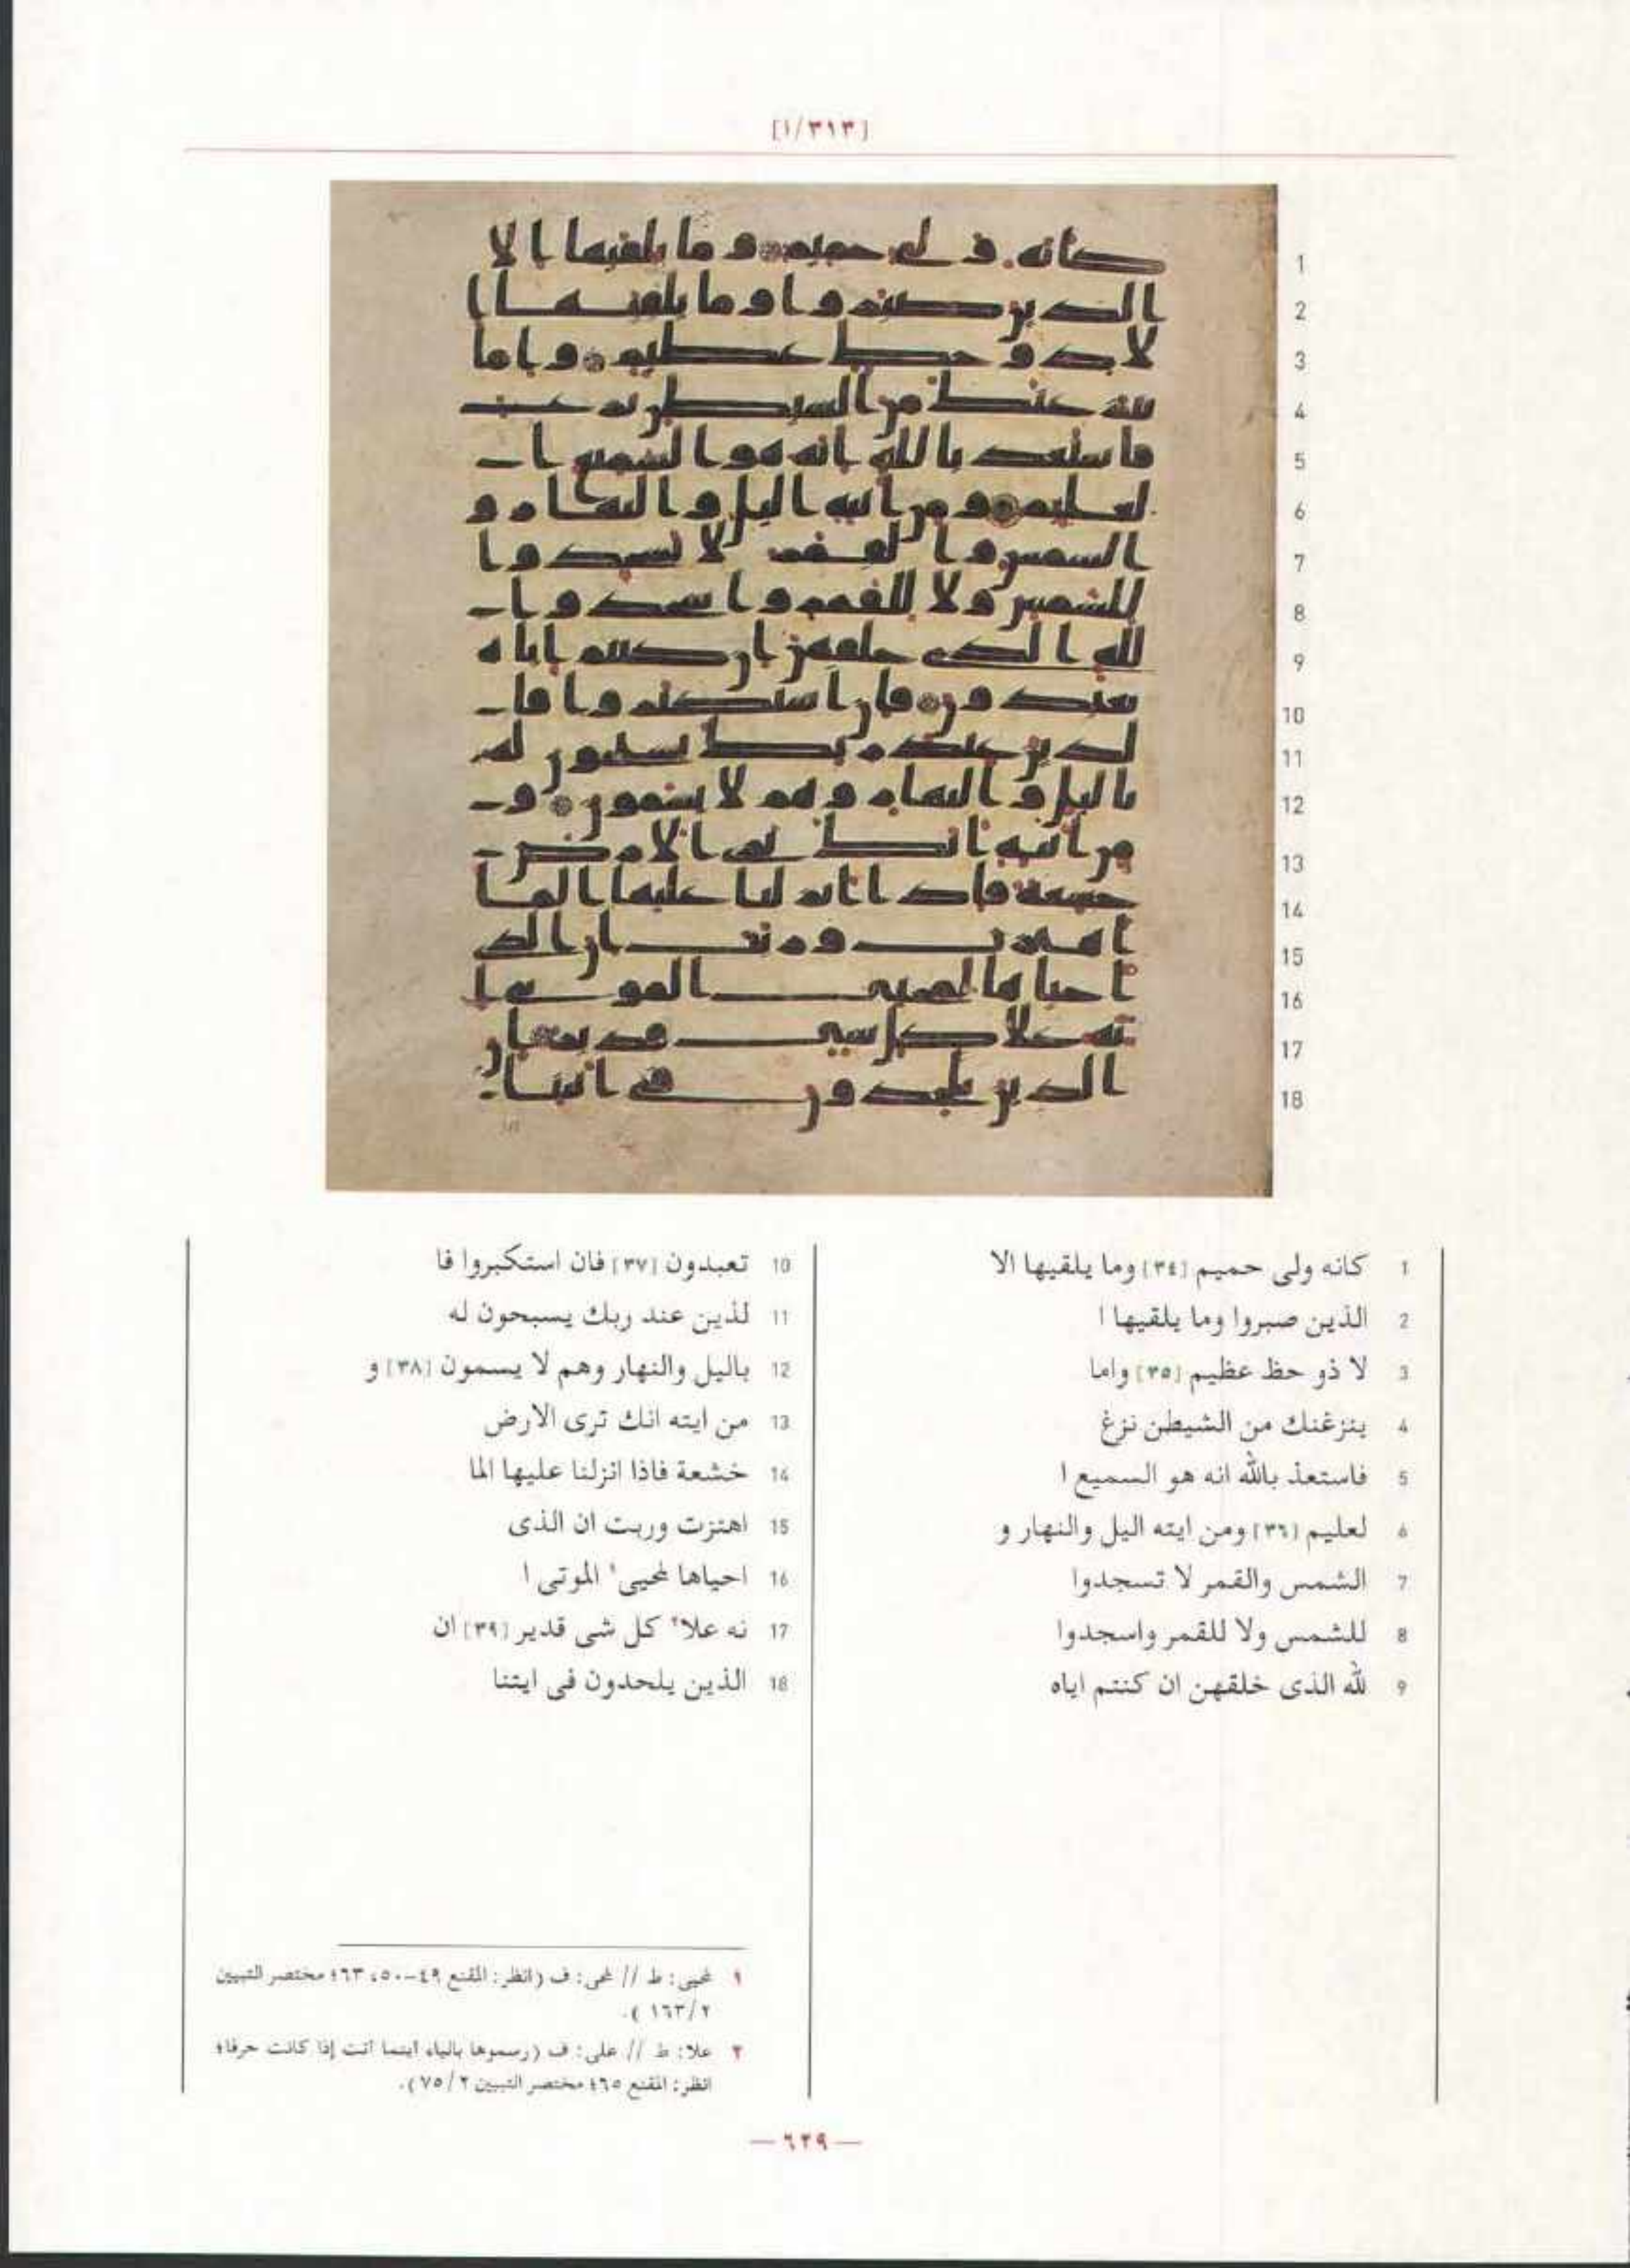 [١/٣١٣]
1 كانه ولى حميم [٣٤] وما يلقيها الا
2 الذين صبروا وما يلقيها ا
3 لا ذو حظ عظيم [٣٥] واما
4 ينزغنك من الشيطن نزغ
5 فاستعذ بالله انه هو السميع ا
6 لعليم [٣٦] ومن ايته اليل والنهار و
7 الشمس والقمر لا تسجدوا
8 للشمس ولا للقمر واسجدوا
9 لله الذى خلقهن ان كنتم اياه
10 تعبدون [٣٧] فان استكبروا فا
11 لذين عند ربك يسبحون له
12 باليل والنهار وهم لا يسمون [٣٨] و
13 من ايته انك ترى الارض
14 خشعة فاذا انزلنا عليها الما
15 اهتزت وربت ان الذى
16 احياها لمحيى١ الموتى ا
17 نه علا٢ كل شى قدير [٣٩] ان
18 الذين يلحدون فى ايتنا
١ لمحيى: ط // لمحى: ف (انظر: المقنع ٤٩-٥٠، ٦٣؛ مختصر التبيين
٢/١٦٣).
٢ علا: ط // على: ف (رسموها بالياء اينما اتت إذا كانت حرفا؛
انظر: المقنع ٦٥؛ مختصر التبيين ٢/٧٥).
— ٦٢٩ —